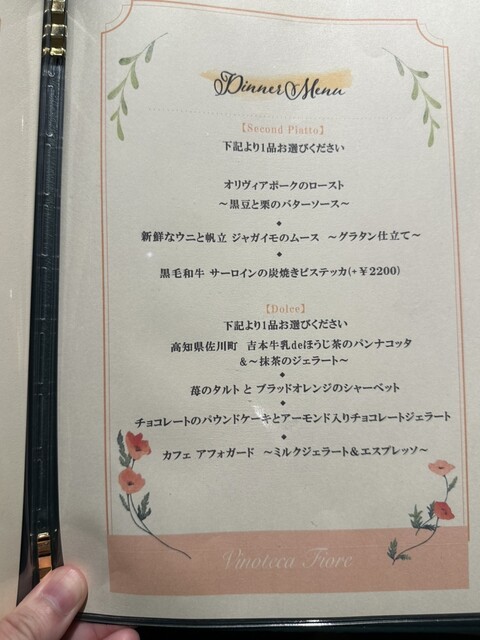 Dinner Menu
【Second Piatto】
下記より1品お選びください
オリヴィアポークのロースト
～黒豆と栗のバターソース～
新鮮なウニと帆立 ジャガイモのムース ～グラタン仕立て～
黒毛和牛 サーロインの炭焼きビステッカ(+￥2200)
【Dolce】
下記より1品お選びください
高知県佐川町 吉本牛乳deほうじ茶のパンナコッタ
&～抹茶のジェラート～
苺のタルト と ブラッドオレンジのシャーベット
チョコレートのパウンドケーキとアーモンド入りチョコレートジェラート
カフェ アフォガード ～ミルクジェラート＆エスプレッソ～
Vinoteca Fiore